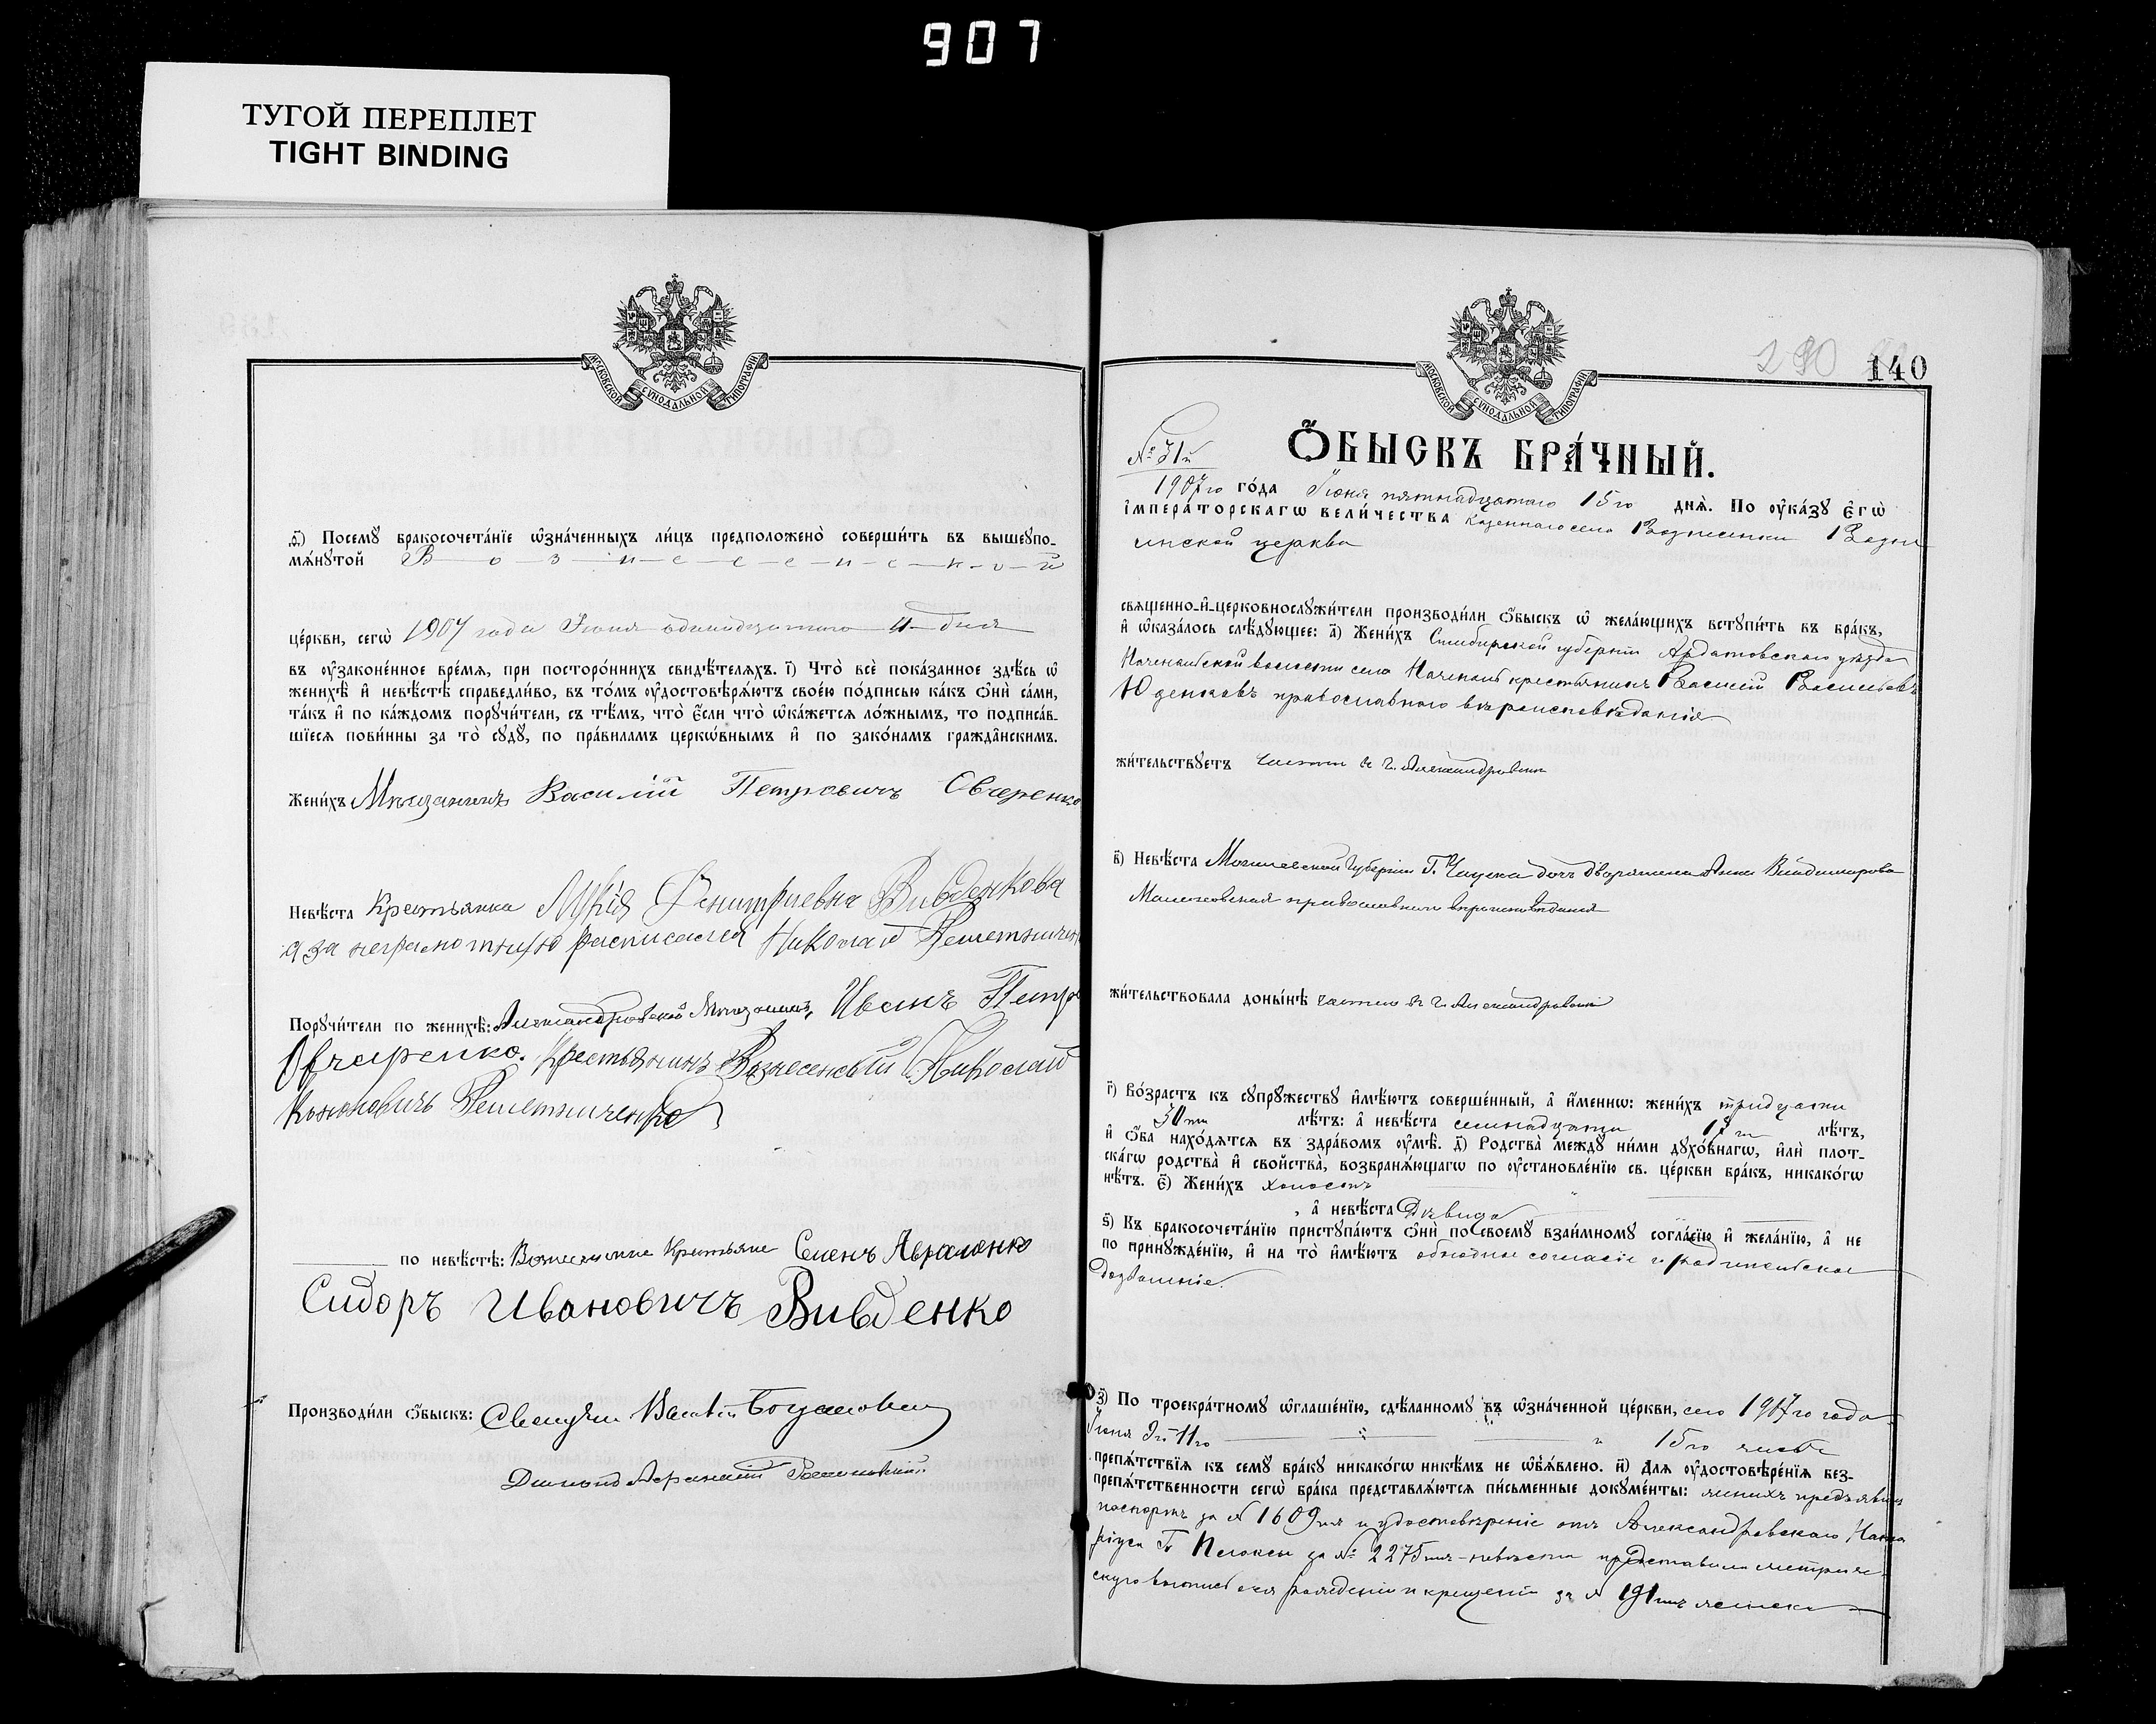 907
ТУГОЙ ПЕРЕПЛЕТ
TIGHT BINDING
МОСКОВСКОЙ СУНОДАЛЬНОЙ ТИПОГРАФІИ
ѳ҃) Посемꙋ бракосочета́нїе ѡ҆зна́ченныхъ ли́цъ предположено̀ соверши́ть въ вышеꙋпо-
мѧ́нꙋтой В о з н е с е н с к о й
це́ркви, сегѡ̀ 1907 года Іюня одинадцатаго 11 дня
въ ᲂу҆законе́нное вре́мѧ, при посторо́ннихъ свидѣ́телѧхъ. і҃) Что̀ всѐ пока́занное здѣ́сь ѡ҆
женихѣ̀ и҆ невѣ́стѣ справедли́во, въ то́мъ ᲂу҆достовѣрѧ́ютъ свое́ю по́дписью ка́къ ѻ҆нѝ са́ми,
та́къ и҆ по ка́ждомъ порꙋчи́тели, съ тѣ́мъ, что̀ є҆́сли что̀ ѡ҆ка́жетсѧ ло́жнымъ, то подписа́в-
шїесѧ пови́нны за то̀ сꙋдꙋ̀, по пра́виламъ церкѡ́внымъ и҆ по зако́намъ гражда̂нскимъ.
Жени́хъ Мѣщанинъ Василій Петровичъ Овчаренко
Невѣ́ста Крестьянка Дмитриевна Вивденкова
а за неграмотную расписался Николай
Порꙋчи́тели по женихѣ̀: Александровскій Мѣщанинъ, Иванъ Петр
Овчаренко. Крестьянинъ Вознесенскій Николай
по невѣ́стѣ: Вознесенские Крестьяне Семенъ Авраменко
Сидоръ Ивановичъ Вивденко
Производи́ли ѻ҆́быскъ: Священ Василій
Діаконъ Афанасій
МОСКОВСКОЙ СУНОДАЛЬНОЙ ТИПОГРАФІИ
140
№ 31й
Ѻ҆́БЫСКЪ БРА́ЧНЫЙ.
1907го го́да Іюня пятнадцатаго 15го днѧ̀. По ᲂу҆ка́зꙋ є҆гѡ̀
і҆мпера́торскагѡ вели́чества казеннаго села Вознесенки Возне
сенской церкви
свѧще́нно-и҆-церковнослꙋжи́тели производи́ли ѻ҆́быскъ ѡ҆ жела́ющихъ встꙋпи́ть въ бра́къ,
и҆ ѡ҆каза́лось слѣ́дꙋющее: а҃) Жени́хъ Симбирской губерніи Ардатовскаго уѣзда
волости села крестьянинъ Василій Васильевъ
Юденковъ православнаго вѣроисповѣданія
жи́тельствꙋетъ въ г. Александровскѣ
в҃) Невѣ́ста Могилевской Губерніи Г. Чауска дочь дворянина Анна Владимирова
православнаго вѣроисповѣданія
жи́тельствовала доны́нѣ въ г. Александровскѣ
г҃) Во́зрастъ къ сꙋпрꙋ́жествꙋ и҆мѣ́ютъ соверше́нный, а҆ и҆́меннѡ: жени́хъ тридцати
30ти лѣ́тъ: а҆ невѣ́ста семнадцати 17ти лѣ́тъ,
и҆ ѻ҆́ба нахо́дѧтсѧ въ здра́вомъ ᲂу҆мѣ̀. д҃) Родства̀ междꙋ̀ ни́ми дꙋхо́внагѡ, и҆лѝ плот-
ска́гѡ родства̀ и҆ свойства̀, возбранѧ́ющагѡ по ᲂу҆становле́нїю св. це́ркви бра́къ, никако́гѡ
нѣ́тъ. є҃) Жени́хъ холостъ
, а҆ невѣ́ста дѣвица
ѕ҃) Къ бракосочета́нїю пристꙋпа́ютъ ѻ҆нѝ по своемꙋ̀ взаи́мномꙋ согла́сїю и҆ жела́нїю, а҆ не
по принꙋжде́нїю, и҆ на то̀ и҆мѣ́ютъ обоюдное согласіе и родительское
дозволеніе.
з҃) По троекра́тномꙋ ѡ҆глаше́нїю, сдѣ́ланномꙋ въ ѡ҆зна́ченной це́ркви, сего 1907го года
Іюня 11го 15го числа
препѧ́тствїѧ къ семꙋ̀ бра́кꙋ никако́гѡ никѣ́мъ не ѡ҆б̾ѧ́влено. и҃) Длѧ ᲂу҆достовѣре́нїѧ без-
препѧ́тственности сегѡ̀ бра́ка представлѧ́ютсѧ пи́сьменные докꙋме́нты: женихъ предъявилъ
паспортъ за № 1609мъ и удостовѣреніе отъ Александровскаго Нота
ріуса за № 2275мъ невѣста представила метриче
скую выпись о рожденіи и крещеніи за № 191мъ